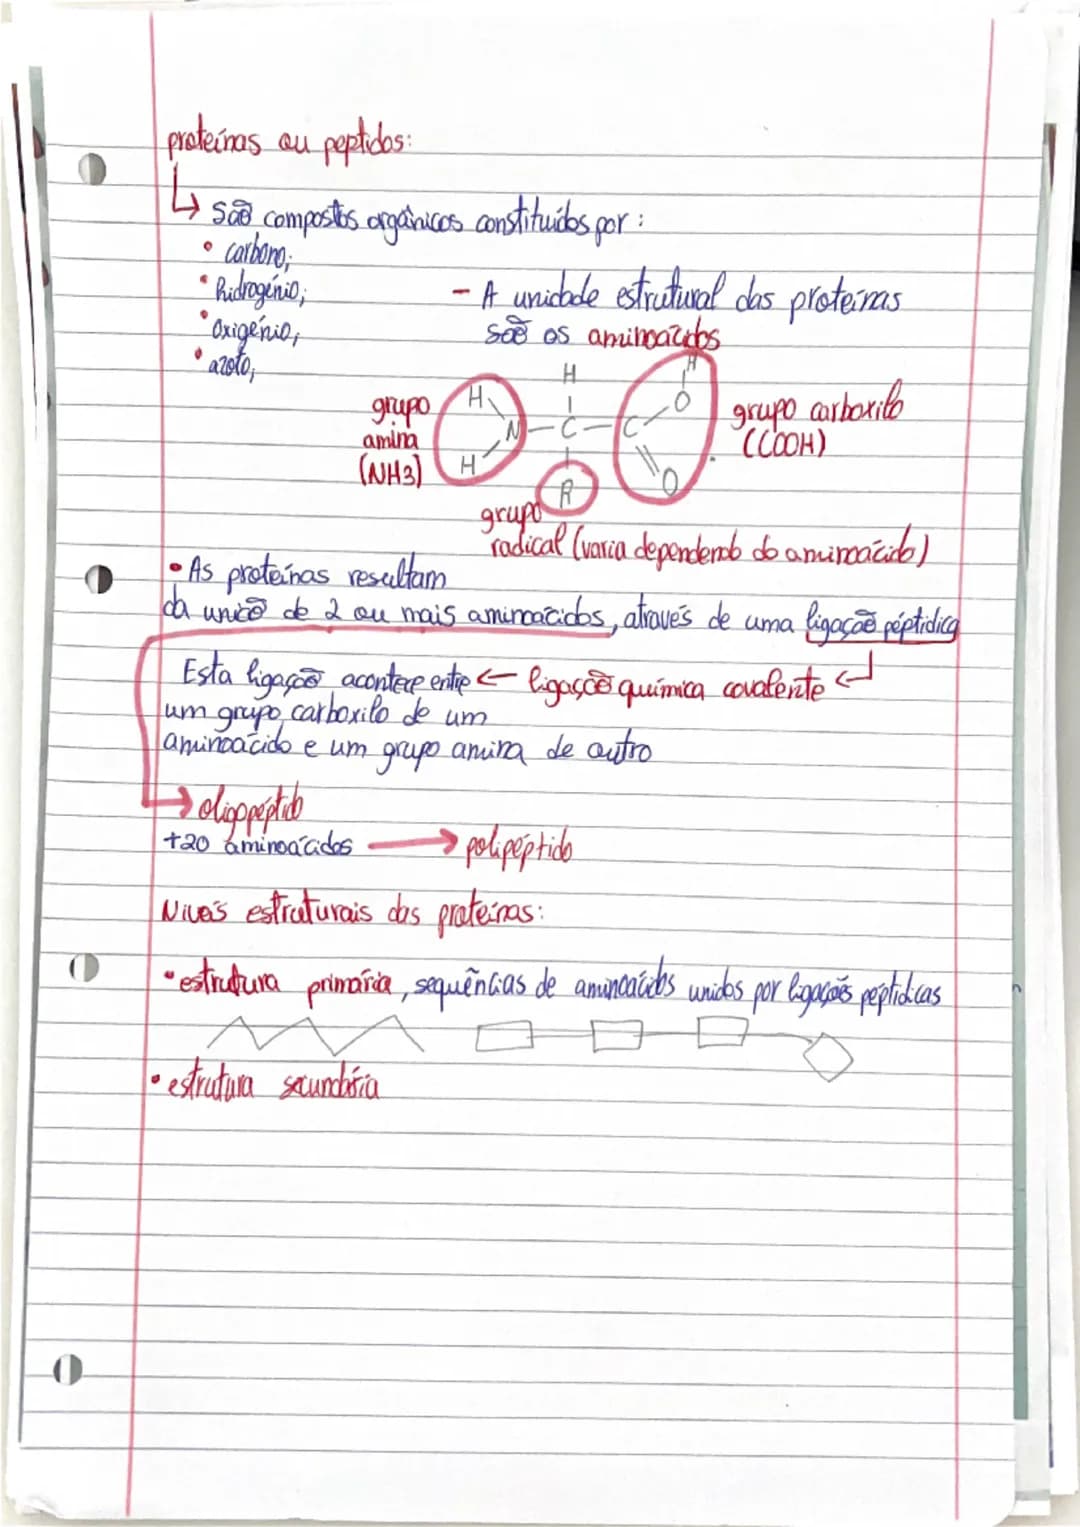 proteínas ou peptidos:
↳ São compostos orgânicos constituídos por:
• carbono;
• hidrogénio;
• oxigénio;
• azoto;
- A unidade estrutural das proteínas
são os aminoácidos
grupo
amina
(NH3)
H
H
N
H
C
R
C
O
H
O
grupo carboxilo
(COOH)
grupo
radical (varia dependendo do aminoácido)
• As proteínas resultam
da união de 2 ou mais aminoácidos, através de uma ligação péptidica
Esta ligação acontece entre ← ligação química covalente ↵
um grupo carboxilo de um
aminoácido e um grupo amina de outro
→ oligopéptido
+20 aminoácidos → polipéptido
Niveís estruturais das proteínas:
• estrutura primária, sequências de aminoácidos unidos por ligações péptidicas
• estrutura secundária